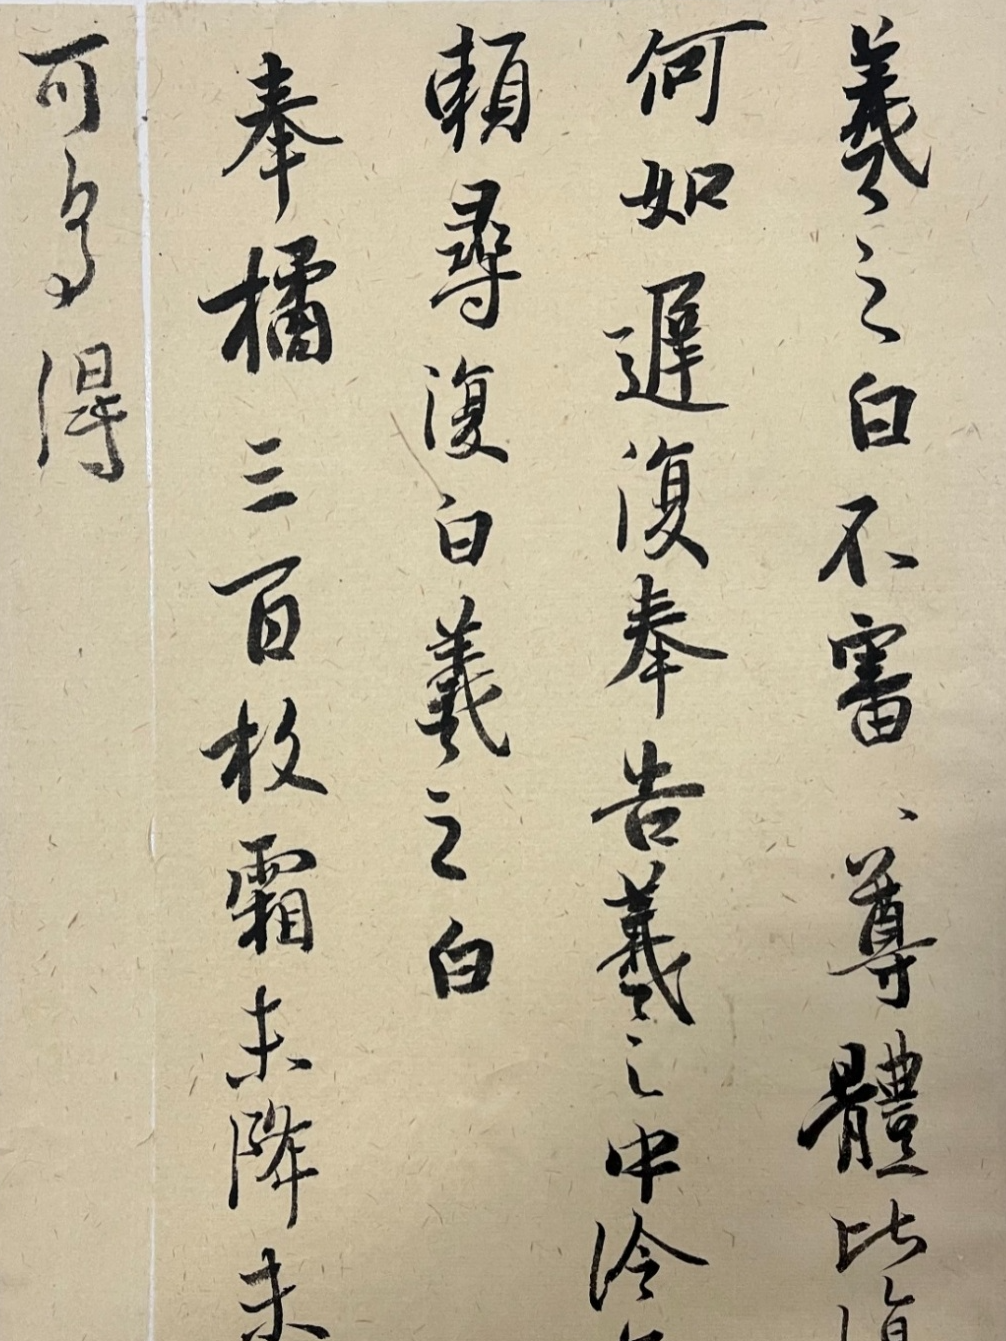 羲之白不審、尊體比復
何如遲復奉告羲之中冷
頼尋復白羲之白
奉橘三百枚霜未降未
可多得